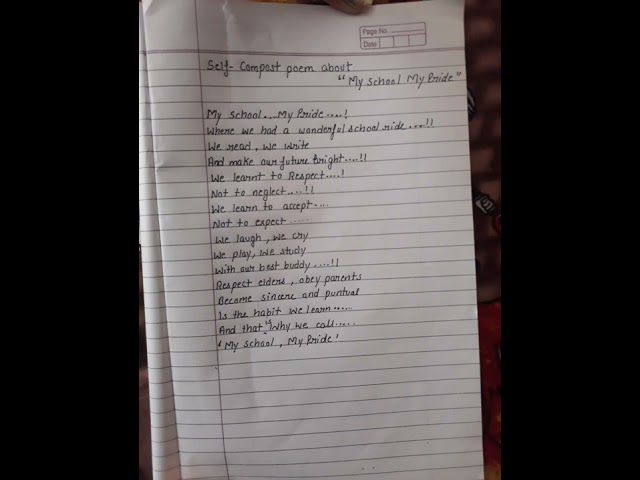 Page No.
Date
Self- Compost poem about
"My School My Pride"
My School...My Pride....!
Where we had a wonderful school ride....!!
We read, we write
And make our future bright....!!
We learnt to Respect....!
Not to neglect....!!
We learn to accept....
Not to expect.....
We laugh, we cry
We play, we study
With our best buddy....!!
Respect elders, obey parents
Become sincere and puntual
Is the habit we learn.....
And that's Why we call.....
'My School, My Pride'